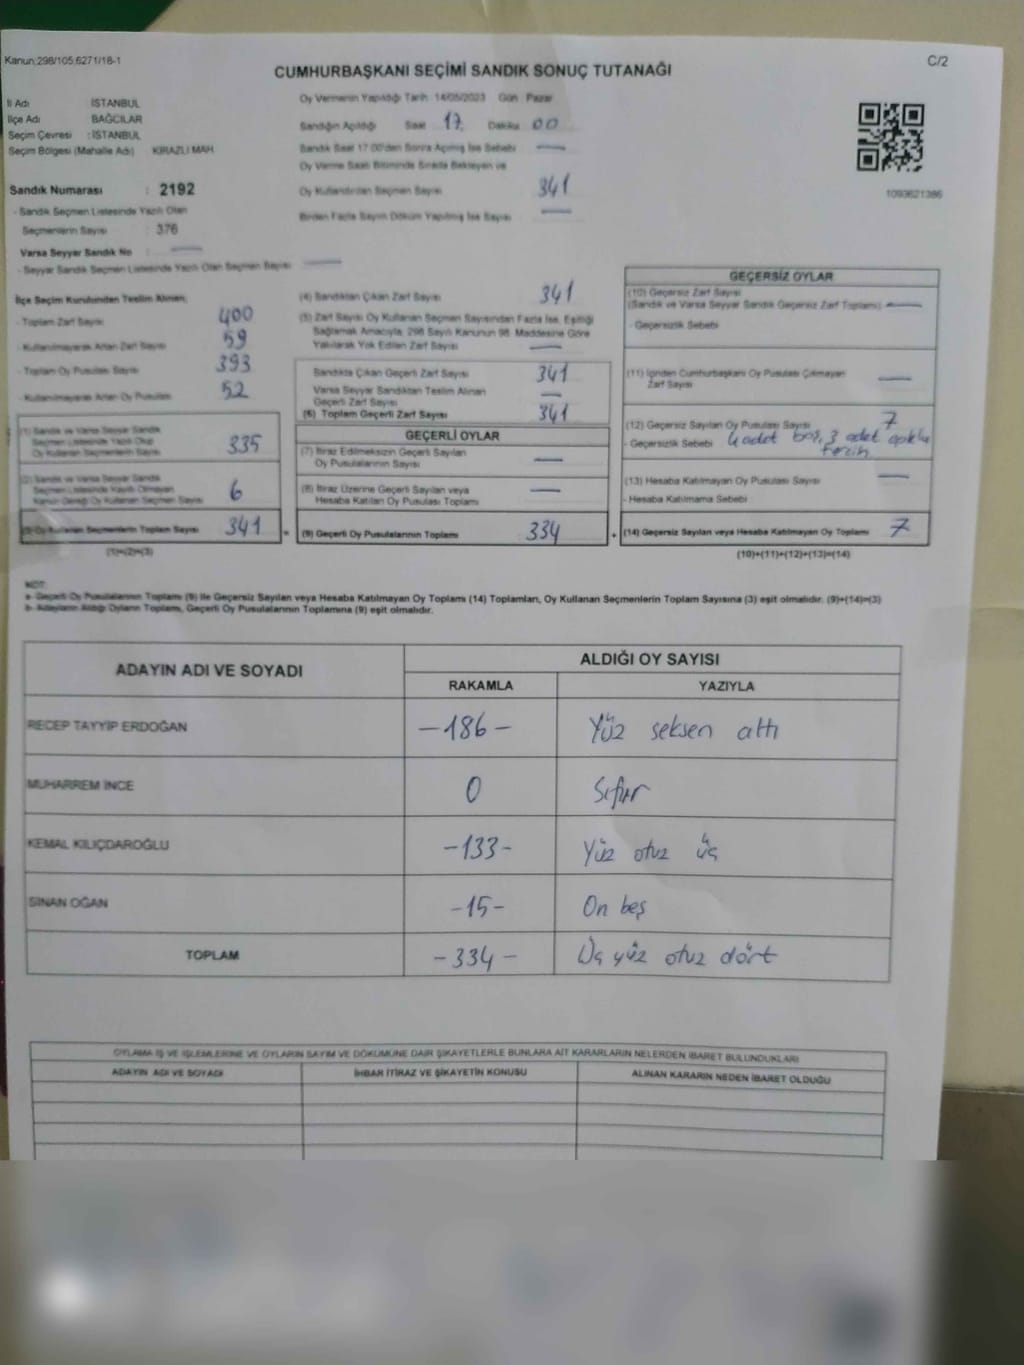 Kanun:298/105,6271/18-1
C/2
CUMHURBAŞKANI SEÇİMİ SANDIK SONUÇ TUTANAĞI
İl Adı İSTANBUL
İlçe Adı BAĞCILAR
Seçim Çevresi : İSTANBUL
Seçim Bölgesi (Mahalle Adı) KİRAZLI MAH.
Sandık Numarası : 2192
- Sandık Seçmen Listesinde Yazılı Olan
Seçmenlerin Sayısı : 376
Varsa Seyyar Sandık No : —
- Seyyar Sandık Seçmen Listesinde Yazılı Olan Seçmen Sayısı —
Oy Vermenin Yapıldığı Tarih :14/05/2023 Gün : Pazar
Sandığın Açıldığı Saat 17 Dakika 00
Sandık Saat 17.00'den Sonra Açılmış İse Sebebi —
Oy Verme Saati Bitiminde Sırada Bekleyen ve
Oy Kullandırılan Seçmen Sayısı 341
Birden Fazla Sayım Döküm Yapılmış İse Sayısı —
1093621386
İlçe Seçim Kurulundan Teslim Alınan;
- Toplam Zarf Sayısı 400
- Kullanılmayarak Artan Zarf Sayısı 59
- Toplam Oy Pusulası Sayısı 393
- Kullanılmayarak Artan Oy Pusulası 52
(1) Sandık ve Varsa Seyyar Sandık
Seçmen Listesinde Yazılı Olup
Oy Kullanan Seçmenlerin Sayısı 335
(2) Sandık ve Varsa Seyyar Sandık
Seçmen Listesinde Kayıtlı Olmayan
Kanun Gereği Oy Kullanan Seçmen Sayısı 6
(3) Oy Kullanan Seçmenlerin Toplam Sayısı 341
(1)+(2)=(3)
(4) Sandıktan Çıkan Zarf Sayısı 341
(5) Zarf Sayısı Oy Kullanan Seçmen Sayısından Fazla İse, Eşitliği
Sağlamak Amacıyla, 298 Sayılı Kanunun 98. Maddesine Göre
Yakılarak Yok Edilen Zarf Sayısı —
Sandıkta Çıkan Geçerli Zarf Sayısı 341
Varsa Seyyar Sandıktan Teslim Alınan
Geçerli Zarf Sayısı —
(6) Toplam Geçerli Zarf Sayısı 341
GEÇERLİ OYLAR
(7) İtiraz Edilmeksizin Geçerli Sayılan
Oy Pusulalarının Sayısı —
(8) İtiraz Üzerine Geçerli Sayılan veya
Hesaba Katılan Oy Pusulası Toplamı —
= (9) Geçerli Oy Pusulalarının Toplamı 334 +
GEÇERSİZ OYLAR
(10) Geçersiz Zarf Sayısı
(Sandık ve Varsa Seyyar Sandık Geçersiz Zarf Toplamı) —
- Geçersizlik Sebebi
(11) İçinden Cumhurbaşkanı Oy Pusulası Çıkmayan
Zarf Sayısı —
(12) Geçersiz Sayılan Oy Pusulası Sayısı 7
- Geçersizlik Sebebi 4 adet boş, 3 adet
tercih
(13) Hesaba Katılmayan Oy Pusulası Sayısı —
- Hesaba Katılmama Sebebi
(14) Geçersiz Sayılan veya Hesaba Katılmayan Oy Toplamı 7
(10)+(11)+(12)+(13)=(14)
NOT:
a- Geçerli Oy Pusulalarının Toplamı (9) ile Geçersiz Sayılan veya Hesaba Katılmayan Oy Toplamı (14) Toplamları, Oy Kullanan Seçmenlerin Toplam Sayısına (3) eşit olmalıdır. (9)+(14)=(3)
b- Adayların Aldığı Oyların Toplamı, Geçerli Oy Pusulalarının Toplamına (9) eşit olmalıdır.
ADAYIN ADI VE SOYADI ALDIĞI OY SAYISI
RAKAMLA YAZIYLA
RECEP TAYYİP ERDOĞAN -186- Yüz seksen altı
MUHARREM İNCE 0 Sıfır
KEMAL KILIÇDAROĞLU -133- Yüz otuz üç
SİNAN OĞAN -15- On beş
TOPLAM -334- Üç yüz otuz dört
OYLAMA İŞ VE İŞLEMLERİNE VE OYLARIN SAYIM VE DÖKÜMÜNE DAİR ŞİKAYETLERLE BUNLARA AİT KARARLARIN NELERDEN İBARET BULUNDUKLARI
ADAYIN ADI VE SOYADI İHBAR İTİRAZ VE ŞİKAYETİN KONUSU ALINAN KARARIN NEDEN İBARET OLDUĞU